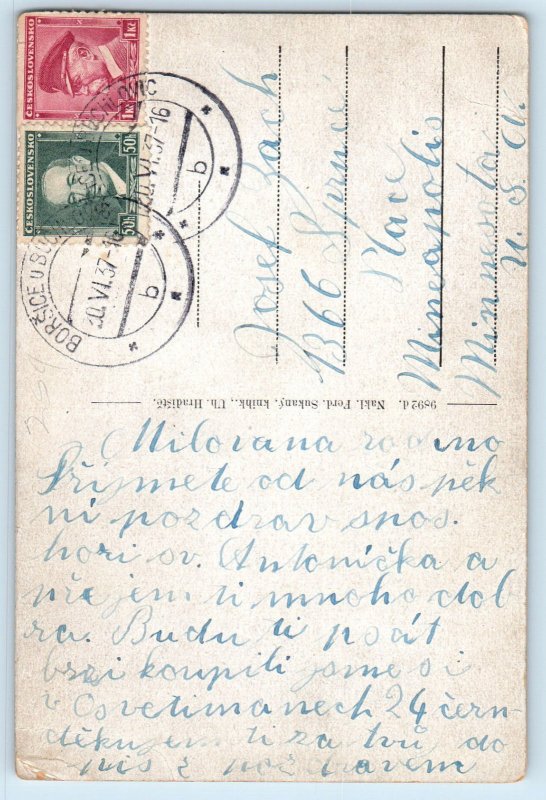 ČESKOSLOVENSKO
1 Kč 1 Kč
ČESKOSLOVENSKO
50 h 50 h
BORŠICE U BUCHLOVIC
20.VI.37-16
* b *
BORŠICE U
20.VI.37-16
* b *
Josef Zach
1366 Spruce
Place
Mineapolis
Minnesota
U. S. A.
9892 d. Nakl. Ferd. Sukaný, knihk., Uh. Hradiště.
Milovana rodino
Přijmete od nás pěk
ni pozdrav snos
hori sv. Antonička a
přejem ti mnoho dob
ra. Budu ti psát
brzi koupili jsme si
v Osvetimanech 24 čern
děkujem ti za tvůj do
pis z pozdravem